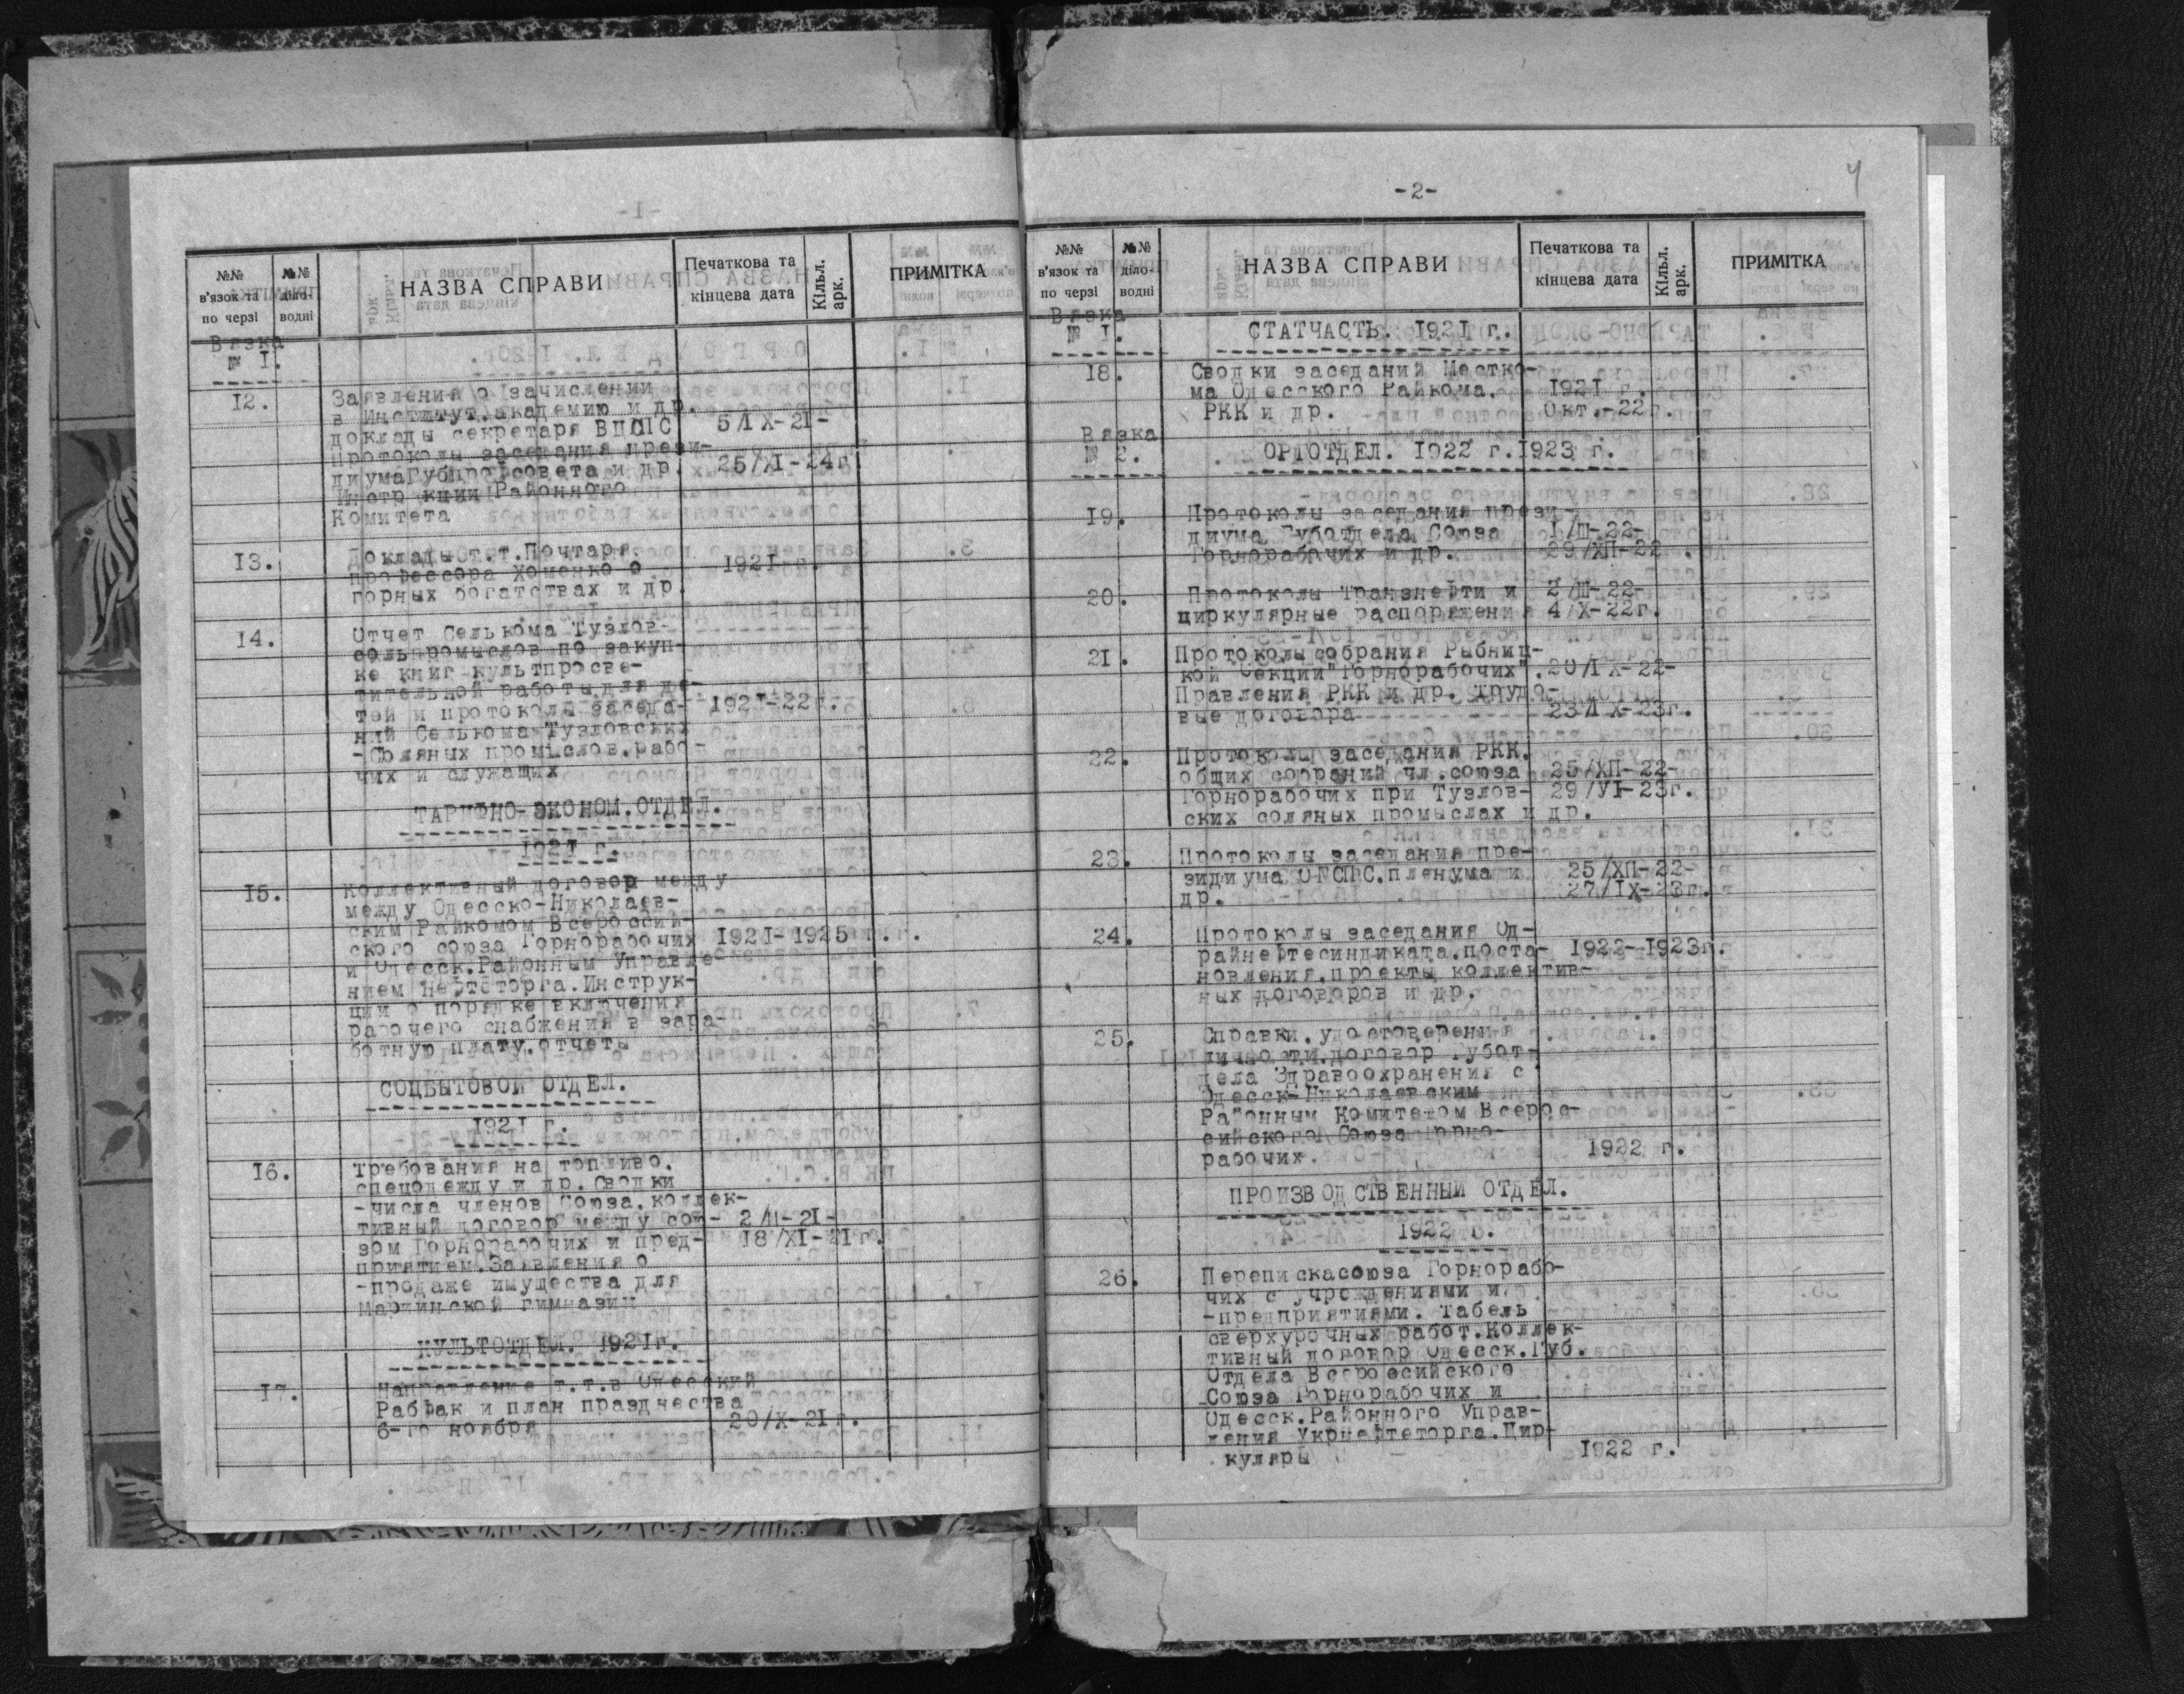 №№
в'язок та
по черзі
№№
діло-
водні
НАЗВА СПРАВИ
Печаткова та
кінцева дата
Кільк.
арк.
ПРИМІТКА
Вязка
№ 1.
12.
Заявления о зачислении
в Институт.академию и др.
доклады секретаря ВЦСПС 5/IX-21-
Протоколы заседания прези-
диума Губпрофсовета и др. 25/XI-24г
Инстр кции Районного
Комитета
13.
Доклады т.т.Почтаря
профессора Хоменко о 1921 г.
горных богатствах и др.
14.
Отчет Селькома Тузлов-
сольпромыслов по закуп-
ке книг культпросве-
тительной работы для де-
тей и протоколы заседа- 1921-22г.
ний Селькома Тузловских
-Соляных промыслов.рабо-
чих и служащих
ТАРИФНО-ЭКОНОМ.ОТДЕЛ.
1921 г.
15.
Коллективный договор между
между Одесско-Николаев-
ским Райкомом Всероссий-
ского союза Горнорабочих 1921-1925 г.г.
и Одесск.Районным Управле
нием Нефтеторга.Инструк-
ции о порядке включения
рабочего снабжения в зара
ботную плату.отчеты
СОЦБЫТОВОЙ ОТДЕЛ.
1921 г.
16.
Требования на топливо.
спецодежду и др.Сводки
-числа членов Союза.коллек-
тивный договор между сою- 2/II-21-
зом Горнорабочих и пред- 18/XI-21г.
приятием.Заявления о
-продаже имущества для
Мариинской гимназии
КУЛЬТОТДЕЛ. 1921г.
17.
Направление т.т.в Одесский
Рабфак и план празднества
6-го ноября 20/X-21г.
-2-
4
№№
в'язок та
по черзі
№№
діло-
водні
НАЗВА СПРАВИ
Печаткова та
кінцева дата
Кільк.
арк.
ПРИМІТКА
Вязка
№ 1.
СТАТЧАСТЬ. 1921 г.
18.
Сводки заседаний Местко-
ма Одесского Райкома. 1921 г.
РКК и др. Окт.-22г.
Вязка
№ 2.
ОРГОТДЕЛ. 1922 г.1923 г.
19.
Протоколы заседания прези-
диума Губотдела Союза 1/Ш-22-
Горнорабочих и др. 29/ХП-22
20.
Протоколы Транзнефти и 2/Ш-22-
циркулярные распоряжения 4/X-22г.
21.
Протоколы собрания Рыбниц-
кой Секции"Горнорабочих". 20/IX-22-
Правления РКК и др. трудо-
вые договора 23/IX-23г.
22.
Протоколы заседания РКК.
общих собраний чл.союза 25/ХП-22-
Горнорабочих при Тузлов- 29/УІ-23г.
ских соляных промыслах и др.
23.
Протоколы заседания пре-
зидиума ОГСПС.пленума и 25/ХП-22-
др. 27/IX-23г.
24.
Протоколы заседания Од-
райнефтесиндиката.поста- 1922-1923г.
новления.проекты коллектив-
ных договоров и др.
25.
Справки.удостоверения
личности.договор Губот-
дела Здравоохранения с
Одесск-Николаевским
Районным Комитетом Всерос-
сийского Союза Горно-
рабочих. 1922 г.
ПРОИЗВОДСТВЕННЫЙ ОТДЕЛ.
1922 г.
26.
Перепискасоюза Горнорабо-
чих с учреждениями и
-предприятиями. Табель
сверхурочных работ.Коллек-
тивный договор Одесск.Губ.
Отдела Всероссийского
Союза Горнорабочих и
Одесск.Районного Управ-
ления Укрнефтеторга.Цир-
куляры 1922 г.